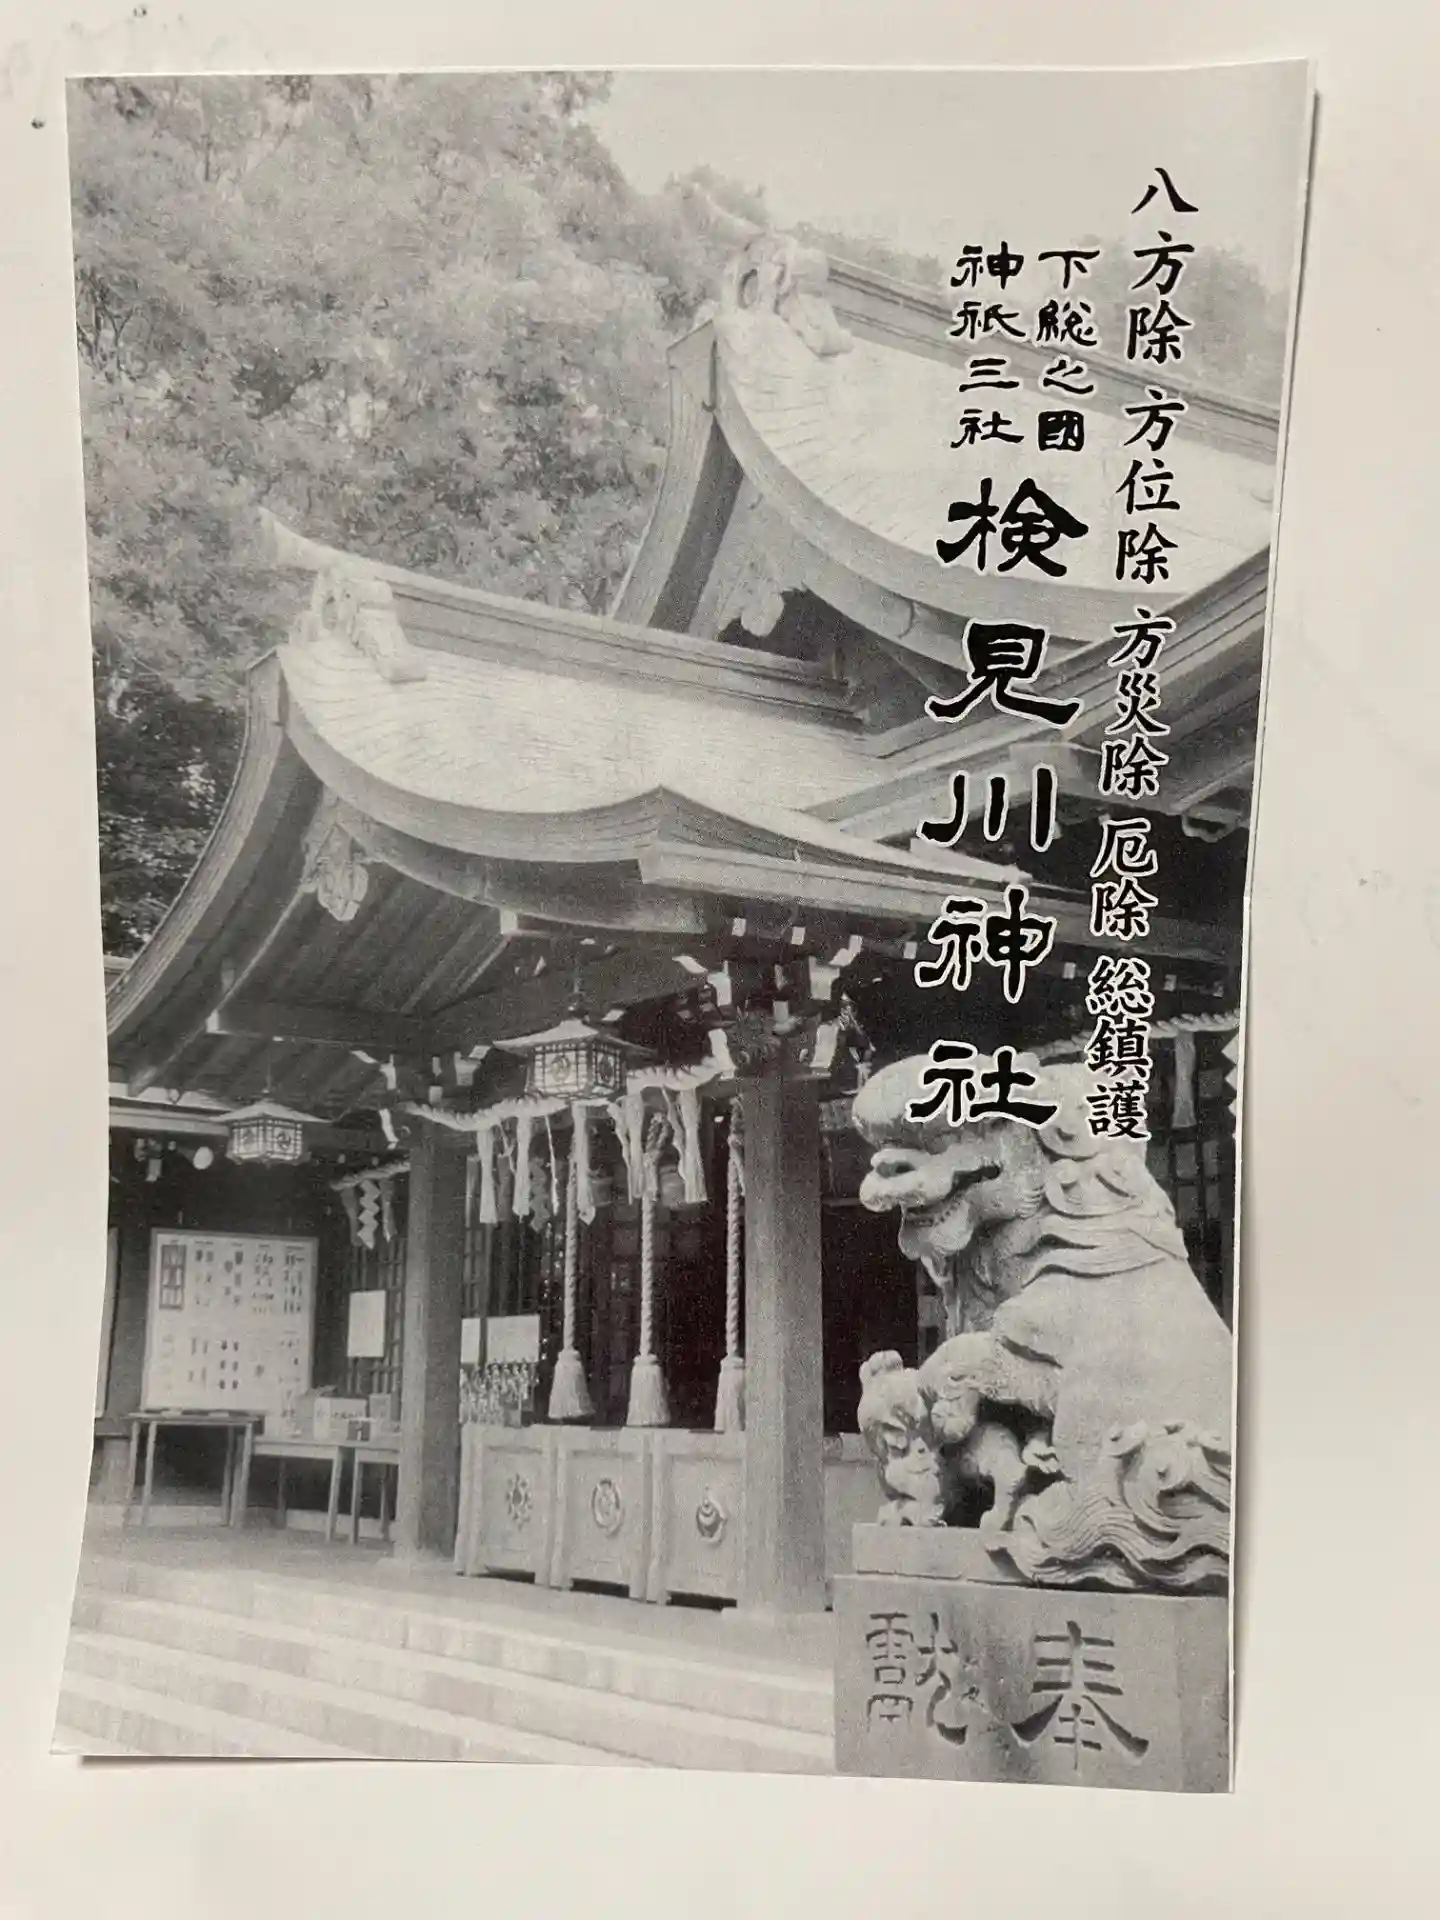 八方除 方位除 方災除 厄除 総鎮護
下総之國
神祇三社
検見川神社
奉
献